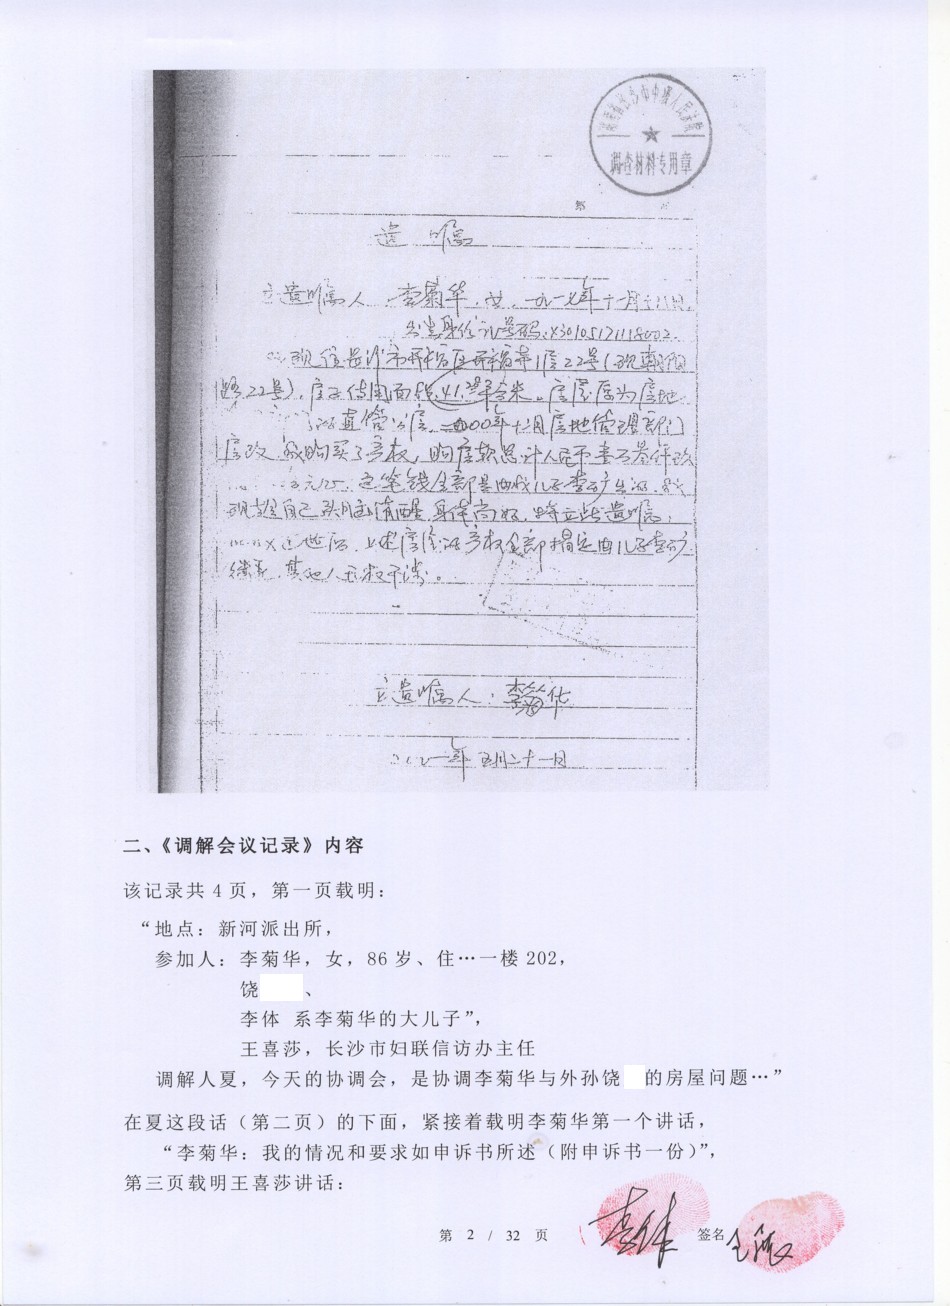 湖南省长沙市中级人民法院
调查材料专用章
第
遗嘱
立遗嘱人:李菊华,女,一九一七年十一月十八日,
出生身份证号码:430105171118002.
现住长沙市开福区开福寺1信22号(现朝阳
路22号),房子使用面积41.平方米。房屋原为房地
直管公房,二000年十二月房地管理部门
房改我购买了产权,购房款总计人民币壹万叁仟玖
元,这笔钱全部是由我儿子李扩出的,我
现趁自己头脑清醒,身体尚好,特立此遗嘱:
过世后,上述房屋的产权全部指定由儿子李扩
继承,其他人无权干涉。
立遗嘱人:李菊华
二00一年五月二十一日
二、《调解会议记录》内容
该记录共4页,第一页载明:
“地点:新河派出所,
参加人:李菊华,女,86岁、住…一楼202,
饶 、
李体 系李菊华的大儿子”,
王喜莎,长沙市妇联信访办主任
调解人夏,今天的协调会,是协调李菊华与外孙饶 的房屋问题…”
在夏这段话(第二页)的下面,紧接着载明李菊华第一个讲话,
“李菊华:我的情况和要求如申诉书所述(附申诉书一份)”,
第三页载明王喜莎讲话:
第 2 / 32 页 李体 签名